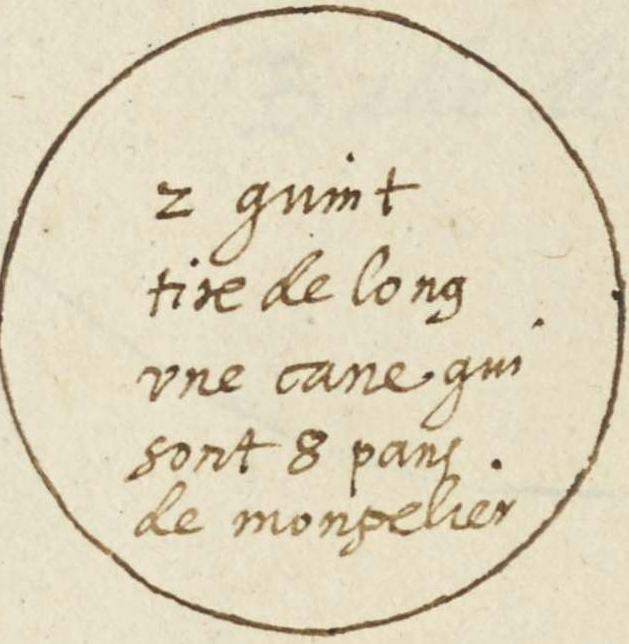 2 quint
tire de long
vne cane qui
sont 8 pans .
de monpelier